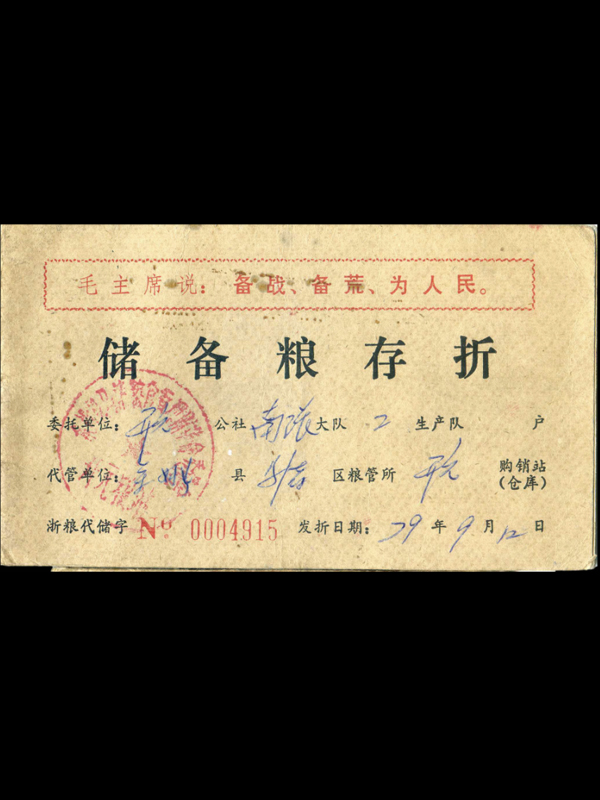 毛主席说：备战、备荒、为人民。
储备粮存折
委托单位：开元 公社 南张 大队 2 生产队 户
代管单位： 县 区粮管所 开元 购销站(仓库)
浙粮代储字 № 0004915 发折日期：79 年 9 月 12 日